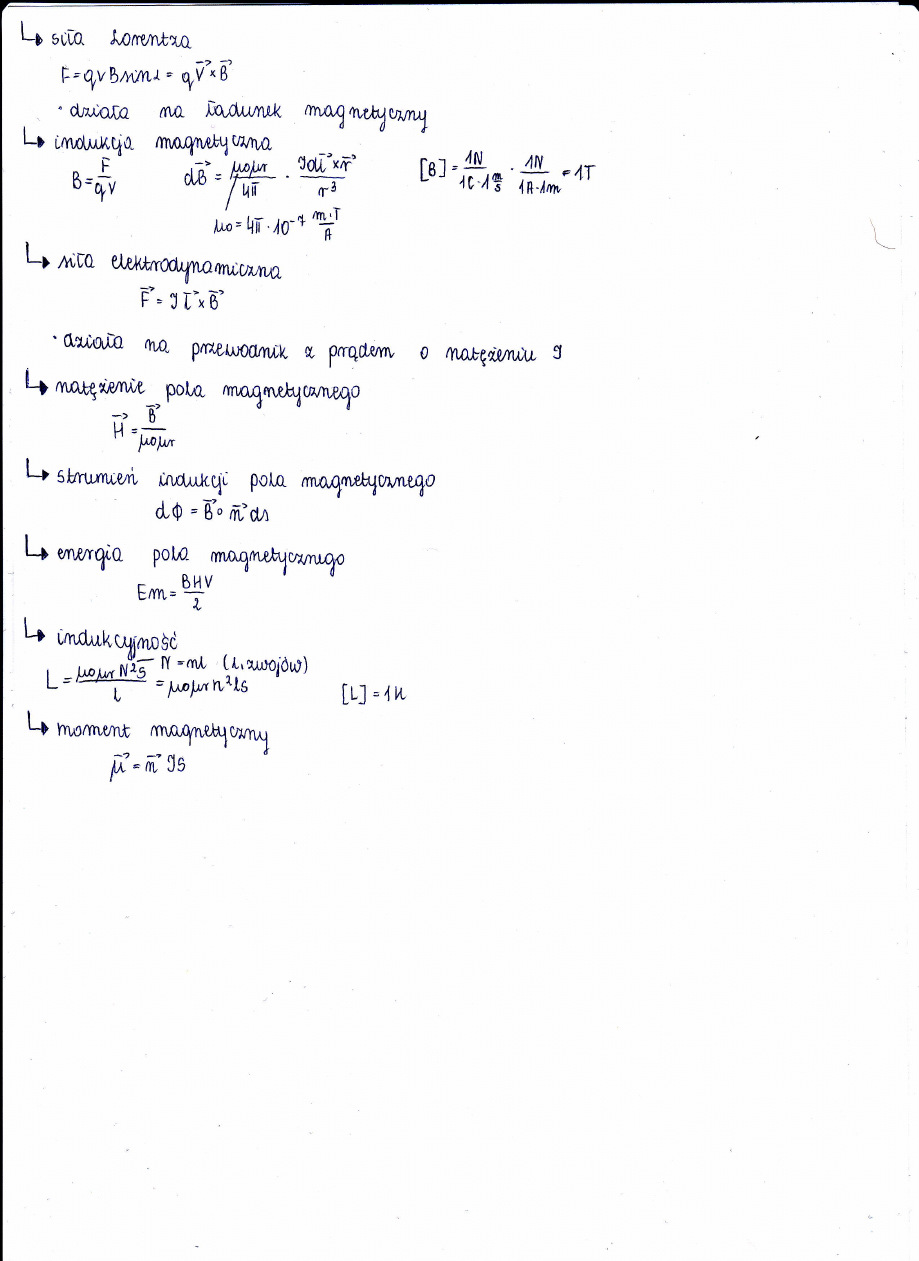 ↳ siła Lorentza
F = qvB sin α = q V⃗ × B⃗
· działa na ładunek magnetyczny
↳ indukcja magnetyczna
B = F/qV   dB⃗ = μ₀μr/4π · Idl⃗ × r⃗/r³   [B] = 1N/1C·1m/s · 1N/1A·1m = 1T
μ₀ = 4π · 10⁻⁷ m·T/A
↳ siła elektrodynamiczna
F⃗ = I l⃗ × B⃗
· działa na przewodnik z prądem o natężeniu I
↳ natężenie pola magnetycznego
H⃗ = B⃗/μ₀μr
↳ strumień indukcji pola magnetycznego
dΦ = B⃗ ∘ n⃗ ds
↳ energia pola magnetycznego
Em = BHV/2
↳ indukcyjność
L = μ₀μr N²S/l   N = nl (l. zwojów)   = μ₀μr n² l S   [L] = 1H
↳ moment magnetyczny
μ⃗ = n⃗ IS